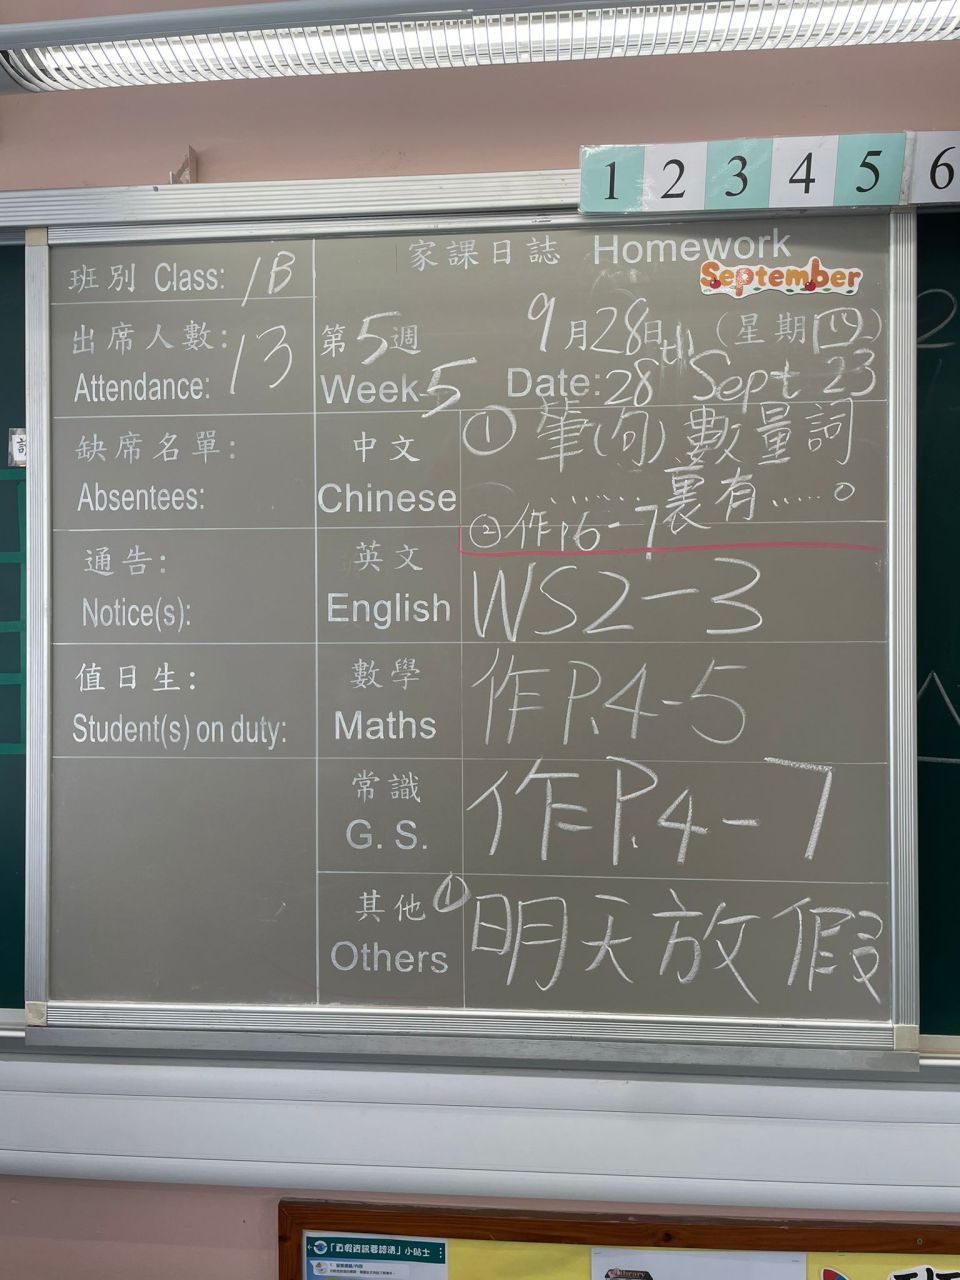 1 2 3 4 5 6
家課日誌 Homework
September
班別 Class: 1B
出席人數: 13
Attendance:
第5週 9月28日 (星期四)
Week 5 Date: 28th Sept 23
缺席名單:
Absentees:
中文
Chinese
① 筆(句) 數量詞
......... 裏有......。
② 作P.6-7
通告:
Notice(s):
英文
English
WS2-3
值日生:
Student(s) on duty:
數學
Maths
作P.4-5
常識
G. S.
作P.4-7
其他
Others
① 明天放假
小貼士
Library